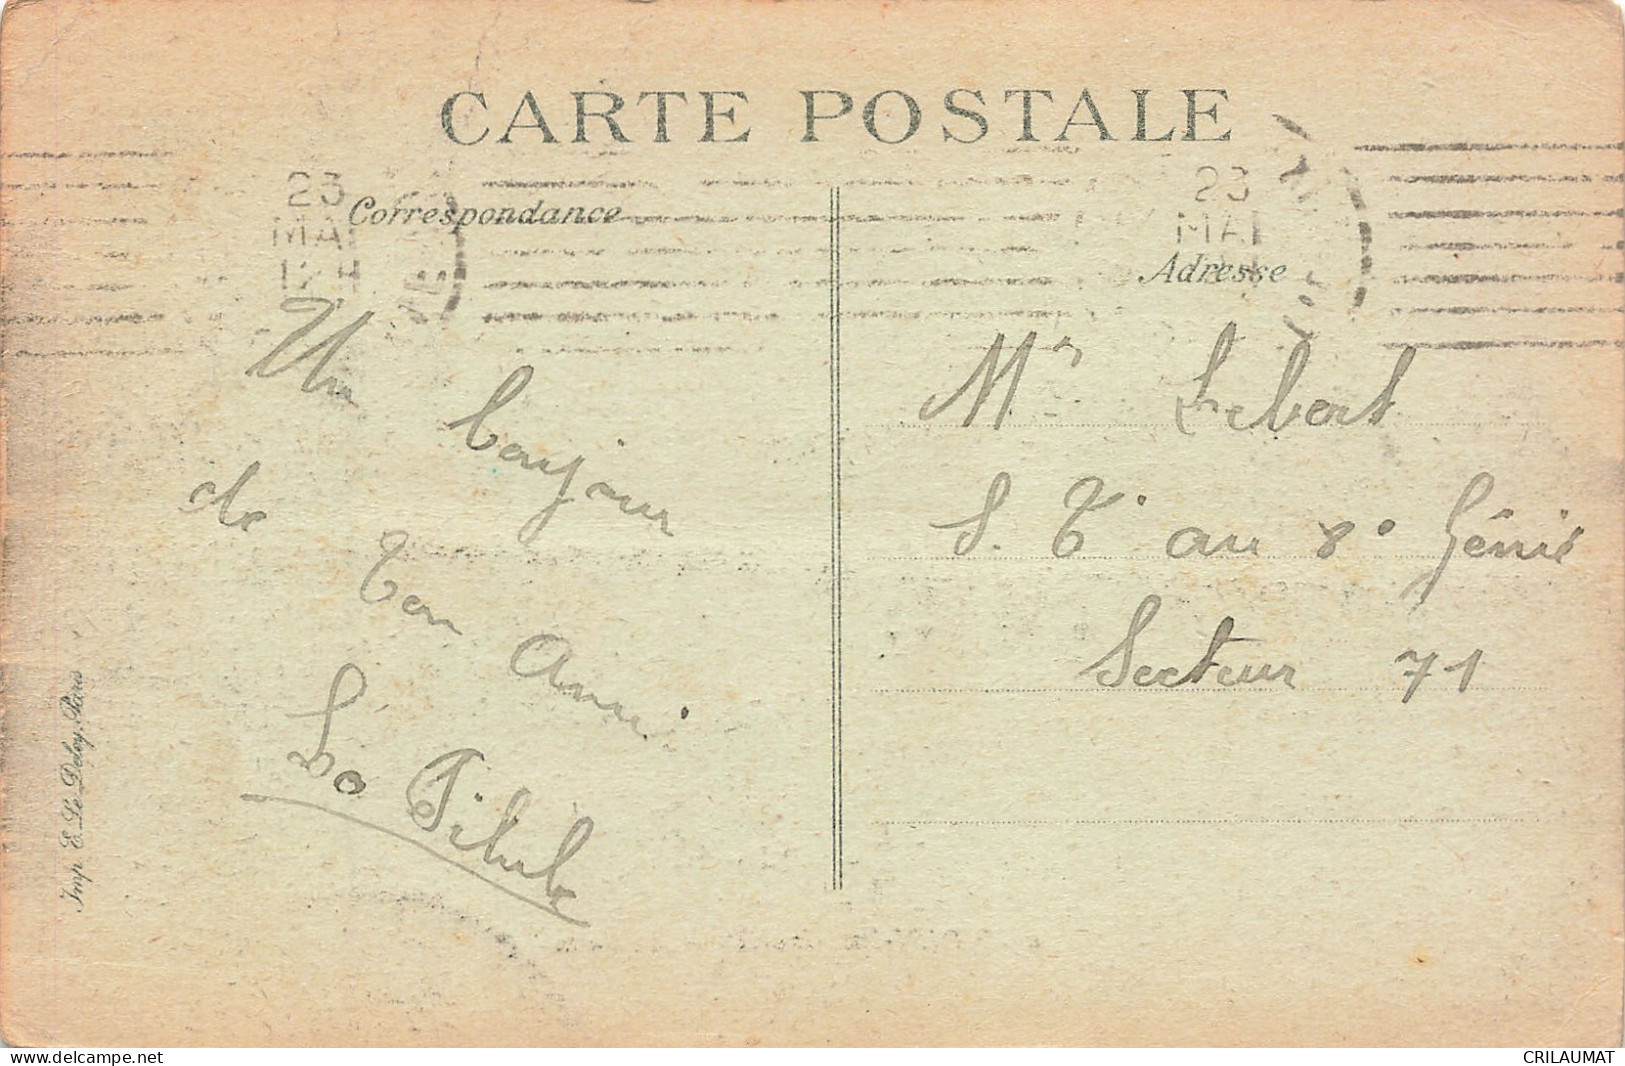 CARTE POSTALE
23
MAI
12 H
23
MAI
Correspondance
Adresse
Un bonjour
de ton ami
La Pilule
Mr Lebert
S. T. au 8e Génie
Secteur 71
Imp. E. Le Deley, Paris
www.delcampe.net
CRILAUMAT